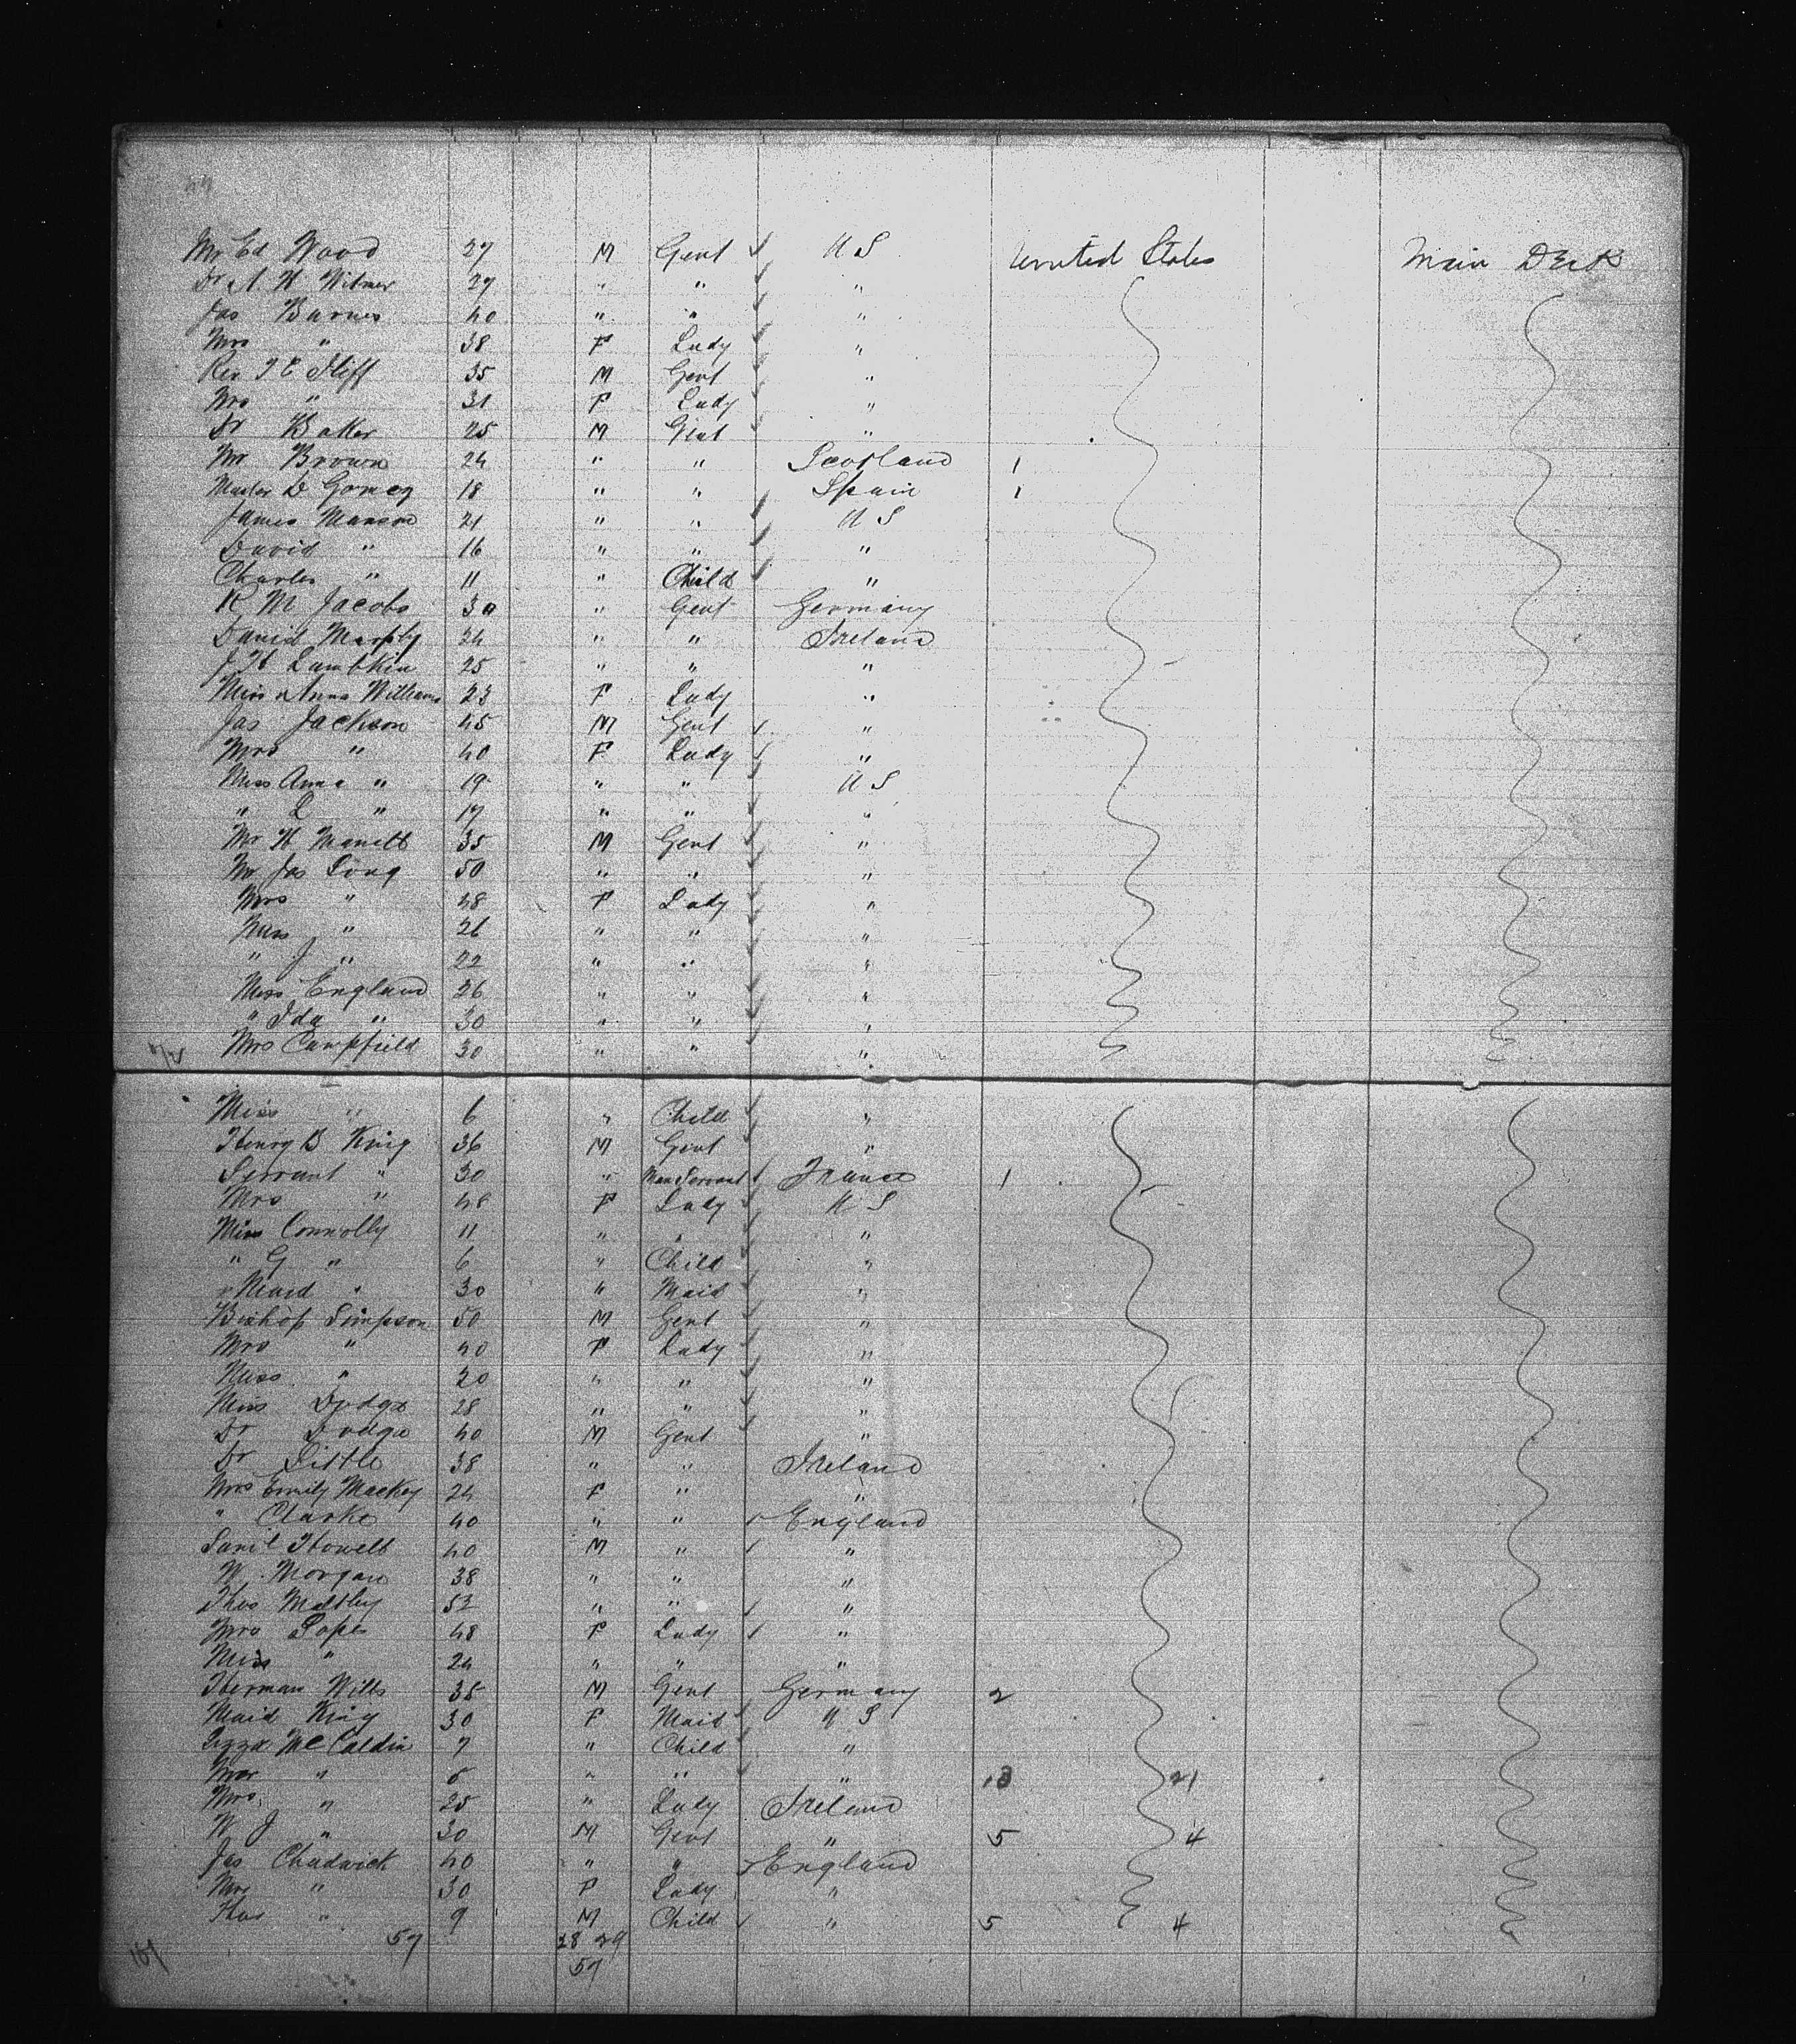 Mr Ed Wood 27 M Gent U S United States Main Deck
Dr A H Witmer 27 " " "
Jas Barnes 40 " " "
Mrs " 38 F Lady "
Rev T C Iliff 35 M Gent "
Mrs " 31 F Lady "
Dr Baker 25 M Gent "
Mr Brown 24 " " Scotland 1
Master D Gomez 18 " " Spain 1
James Manson 21 " " U S
David " 16 " " "
Charles " 11 " Child "
R M Jacobs 30 " Gent Germany
David Murphy 24 " " Ireland
J H Lambkin 25 " " "
Miss Anna Williams 23 F Lady "
Jas Jackson 45 M Gent "
Mrs " 40 F Lady "
Miss Anna " 19 " " U S
" L " 17 " " "
Mr H 35 M Gent "
Mr Jas Long 50 " " "
Mrs " 48 F Lady "
Miss " 26 " " "
" J " 22 " " "
Miss England 26 " " "
" Ida " 30 " " "
Mrs Campfield 30 " " "
Miss " 6 " Child "
Henry B King 36 M Gent "
Servant " 30 " Man Servant France 1
Mrs " 48 F Lady U S
Miss Connolly 11 " " "
" G " 6 " Child "
" Maid " 30 " Maid "
Bishop Simpson 50 M Gent "
Mrs " 40 F Lady "
Miss " 20 " " "
Miss Dodge 28 " " "
Dr Dodge 40 M Gent "
Dr Little 38 " " Ireland
Mrs Emily Mackey 24 F " "
" Clarke 40 " " England
Saml Howell 40 M " "
W Morgan 38 " " "
Thos Maltby 52 " " "
Mrs Pope 48 F Lady "
Miss " 24 " " "
Herman Wills 35 M Gent Germany 2
Maid King 30 F Maid U S
Lizzie McCaldin 7 " Child "
" 5 " " " 13 21
Mrs " 25 " Lady Ireland
W J " 30 M Gent " 5 4
Jas Chadwick 40 " " England
Mrs " 30 F Lady "
" 9 M Child " 5 4
57 28 29
57